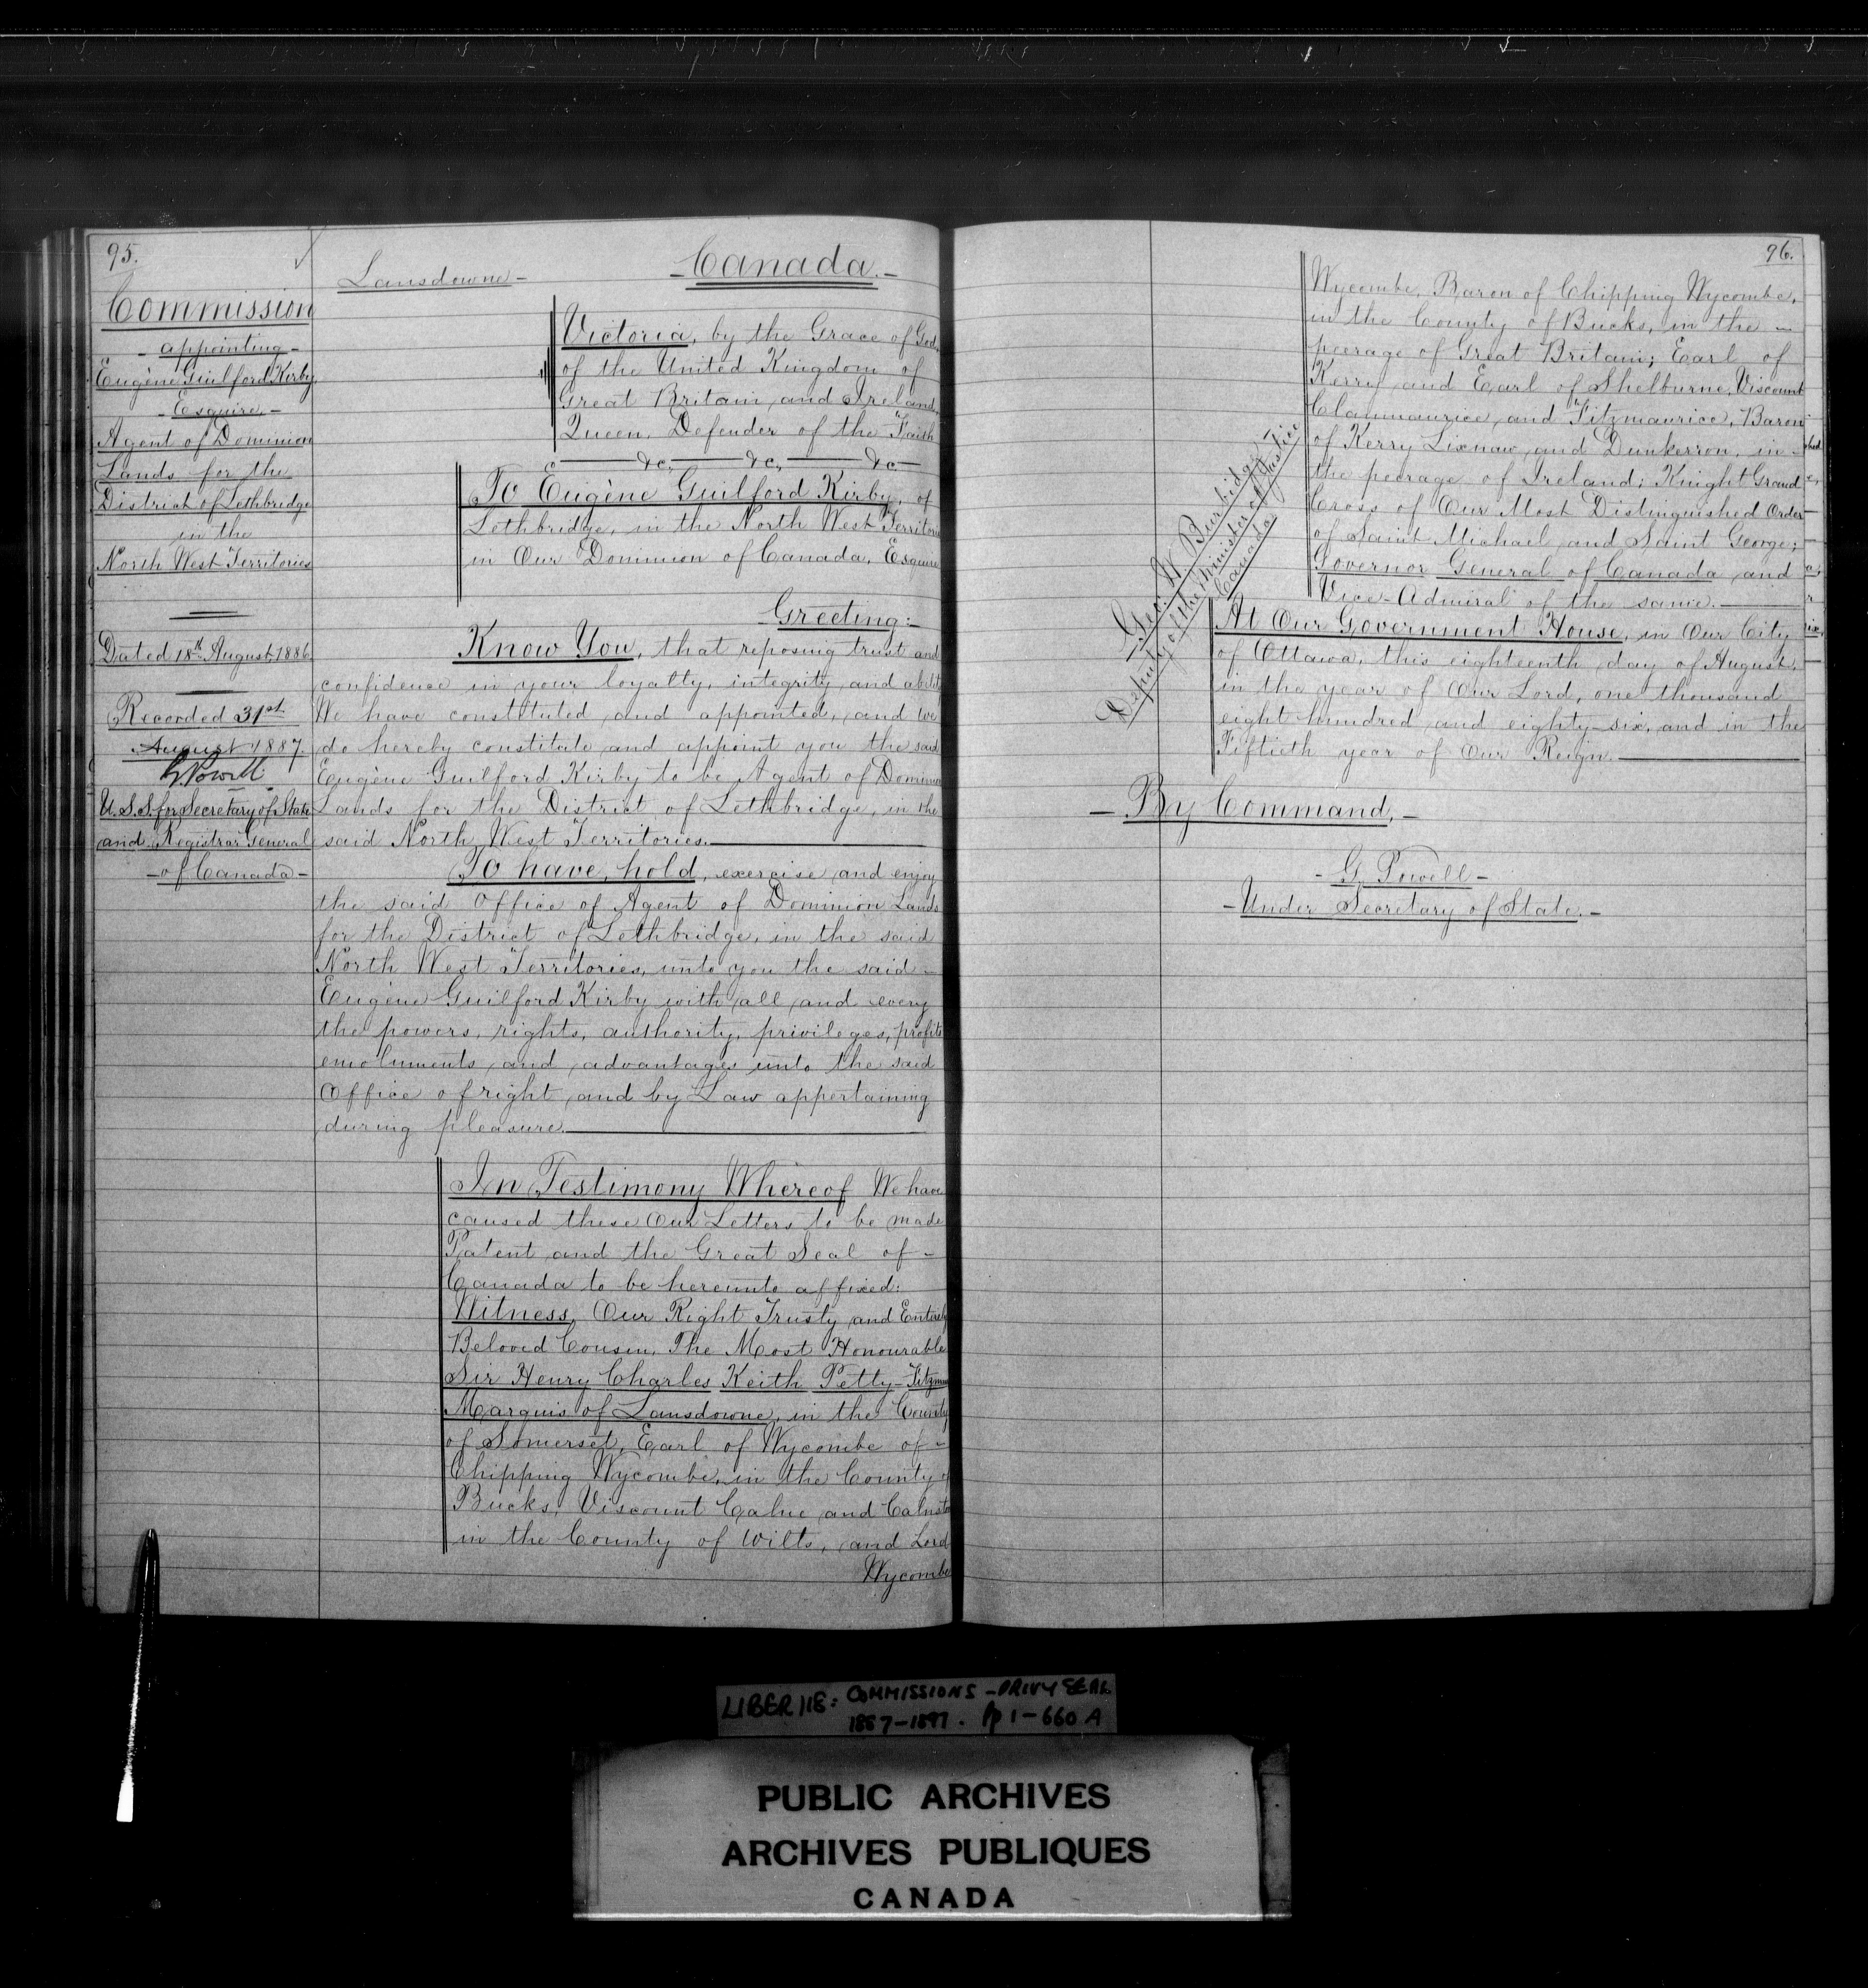 95.
Commission
- appointing -
Eugène Guilford Kirby
- Esquire -
Agent of Dominion
Lands for the
District of Lethbridge
in the
North West Territories
Dated 18th August 1886
Recorded 31st
August 1887.
G Powell
U.S.S. for Secretary of State
and Registrar General
- of Canada -
Lansdowne -
- Canada. -
Victoria, by the Grace of God,
of the United Kingdom of
Great Britain and Ireland,
Queen, Defender of the Faith
&c, &c, &c
To Eugène Guilford Kirby, of
Lethbridge, in the North West Territories
in Our Dominion of Canada, Esquire
Greeting:-
Know You, that reposing trust and
confidence in your loyalty, integrity and ability
We have constituted and appointed, and we
do hereby constitute and appoint you the said
Eugène Guilford Kirby to be Agent of Dominion
Lands for the District of Lethbridge, in the
said North West Territories.
To have, hold, exercise and enjoy
the said Office of Agent of Dominion Lands
for the District of Lethbridge, in the said
North West Territories, unto you the said -
Eugène Guilford Kirby with all and every
the powers, rights, authority, privileges, profits
emoluments and advantages unto the said
Office of right and by Law appertaining
during pleasure.
In Testimony Whereof We have
caused these Our Letters to be made
Patent and the Great Seal of -
Canada to be hereunto affixed:
Witness, Our Right Trusty and Entirely
Beloved Cousin, The Most Honourable
Sir Henry Charles Keith Petty-Fitzm
Marquis of Lansdowne, in the County
of Somerset, Earl of Wycombe of -
Chipping Wycombe, in the County of
Bucks, Viscount Calne and Calnstone
in the County of Wilts, and Lord
Wycombe
96.
Wycombe, Baron of Chipping Wycombe,
in the County of Bucks, in the -
peerage of Great Britain; Earl of
Kerry and Earl of Shelburne, Viscount
Clanmaurice and Fitzmaurice, Baron
of Kerry Lixnaw and Dunkerron, in -
the peerage of Ireland; Knight Grand
Cross of Our Most Distinguished Order
of Saint Michael and Saint George;
Governor General of Canada and
Vice-Admiral of the same.
Geo. W. Burbidge,
Deputy of the Minister of Justice
Canada
At Our Government House, in Our City
of Ottawa, this eighteenth day of August,
in the year of Our Lord, one thousand
eight hundred and eighty-six, and in the
Fiftieth year of Our Reign.
- By Command, -
- G. Powell -
- Under Secretary of State. -
LIBER 118: COMMISSIONS - PRIVY SEAL
1887-1897. pp 1-660 A
PUBLIC ARCHIVES
ARCHIVES PUBLIQUES
CANADA